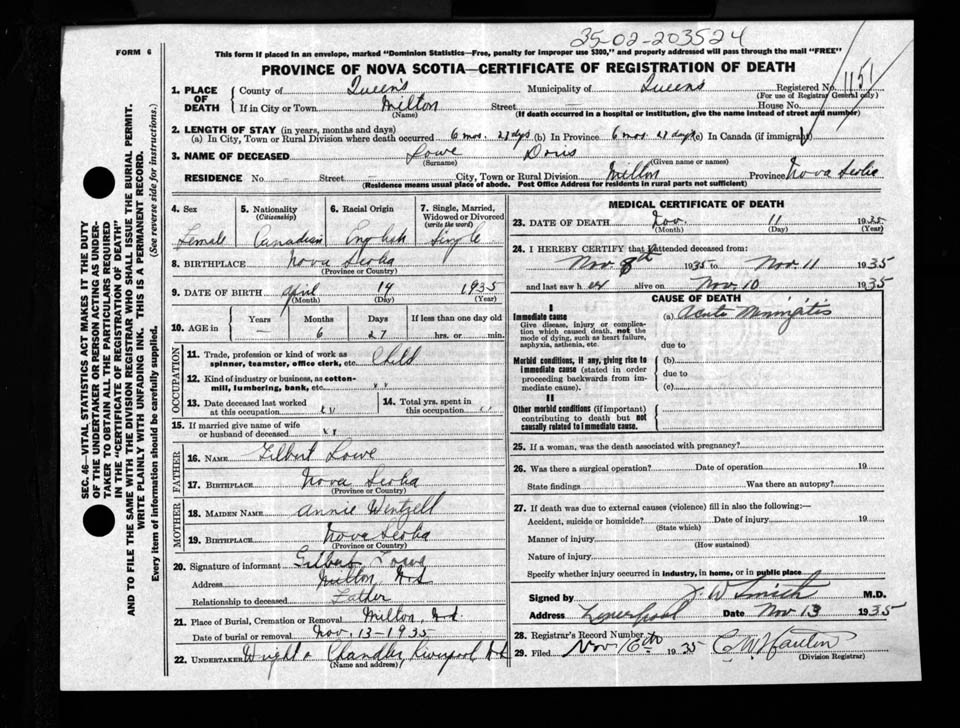 FORM 6
35-02-203524
This form if placed in an envelope, marked "Dominion Statistics—Free, penalty for improper use $300," and properly addressed will pass through the mail "FREE"
PROVINCE OF NOVA SCOTIA—CERTIFICATE OF REGISTRATION OF DEATH
1. PLACE OF DEATH
County of Queen's Municipality of Queens Registered No. 1151
(For use of Registrar General only)
If in City or Town Milton Street — House No.
(Name) (If death occurred in a hospital or institution, give the name instead of street and number)
2. LENGTH OF STAY (in years, months and days)
(a) In City, Town or Rural Division where death occurred 6 mos. 27 dys (b) In Province 6 mos. 27 dys (c) In Canada (if immigrant)
3. NAME OF DECEASED Lowe Doris
(Surname) (Given name or names)
RESIDENCE No. Street — City, Town or Rural Division Milton Province Nova Scotia
(Residence means usual place of abode. Post Office Address for residents in rural parts not sufficient)
4. Sex 5. Nationality (Citizenship) 6. Racial Origin 7. Single, Married, Widowed or Divorced (write the word)
Female Canadian English Single
8. BIRTHPLACE Nova Scotia
(Province or Country)
9. DATE OF BIRTH April 14 1935
(Month) (Day) (Year)
10. AGE in Years Months Days If less than one day old
— 6 27 hrs. or min.
OCCUPATION
11. Trade, profession or kind of work as spinner, teamster, office clerk, etc. Child
12. Kind of industry or business, as cotton-mill, lumbering, bank, etc. " "
13. Date deceased last worked at this occupation " " 14. Total yrs. spent in this occupation " "
15. If married give name of wife or husband of deceased " "
FATHER
16. NAME Gilbert Lowe
17. BIRTHPLACE Nova Scotia
(Province or Country)
MOTHER
18. MAIDEN NAME Annie Wentzell
19. BIRTHPLACE Nova Scotia
(Province or Country)
20. Signature of informant Gilbert Lowe
Address Milton, N.S
Relationship to deceased Father
21. Place of Burial, Cremation or Removal Milton, N.S.
Date of burial or removal Nov. 13 – 1935
22. UNDERTAKER Wright & Chandler Liverpool N.S
(Name and address)
MEDICAL CERTIFICATE OF DEATH
23. DATE OF DEATH Nov. 11 1935
(Month) (Day) (Year)
24. I HEREBY CERTIFY that I attended deceased from:
Nov. 8th 1935 to Nov. 11 1935
and last saw her alive on Nov. 10 1935
CAUSE OF DEATH
I
Immediate cause (a) Acute Miningitis
Give disease, injury or complication which caused death, not the mode of dying, such as heart failure, asphyxia, asthenia, etc.
due to
Morbid conditions, if any, giving rise to immediate cause (stated in order proceeding backwards from immediate cause).
(b)
due to
(c)
II
Other morbid conditions (if important) contributing to death but not causally related to immediate cause.
25. If a woman, was the death associated with pregnancy?
26. Was there a surgical operation? Date of operation 19
State findings Was there an autopsy?
27. If death was due to external causes (violence) fill in also the following:—
Accident, suicide or homicide? Date of injury 19
(State which)
Manner of injury
(How sustained)
Nature of injury
Specify whether injury occurred in industry, in home, or in public place
Signed by J. W Smith M.D.
Address Liverpool Date Nov 13 1935
28. Registrar's Record Number
29. Filed Nov. 16th 1935
(Division Registrar)
SEC. 46—VITAL STATISTICS ACT MAKES IT THE DUTY
OF THE UNDERTAKER OR PERSON ACTING AS UNDER-
TAKER TO OBTAIN ALL THE PARTICULARS REQUIRED
IN THE "CERTIFICATE OF REGISTRATION OF DEATH"
AND TO FILE THE SAME WITH THE DIVISION REGISTRAR WHO SHALL ISSUE THE BURIAL PERMIT.
WRITE PLAINLY WITH UNFADING INK. THIS IS A PERMANENT RECORD.
Every item of information should be carefully supplied. (See reverse side for instructions.)